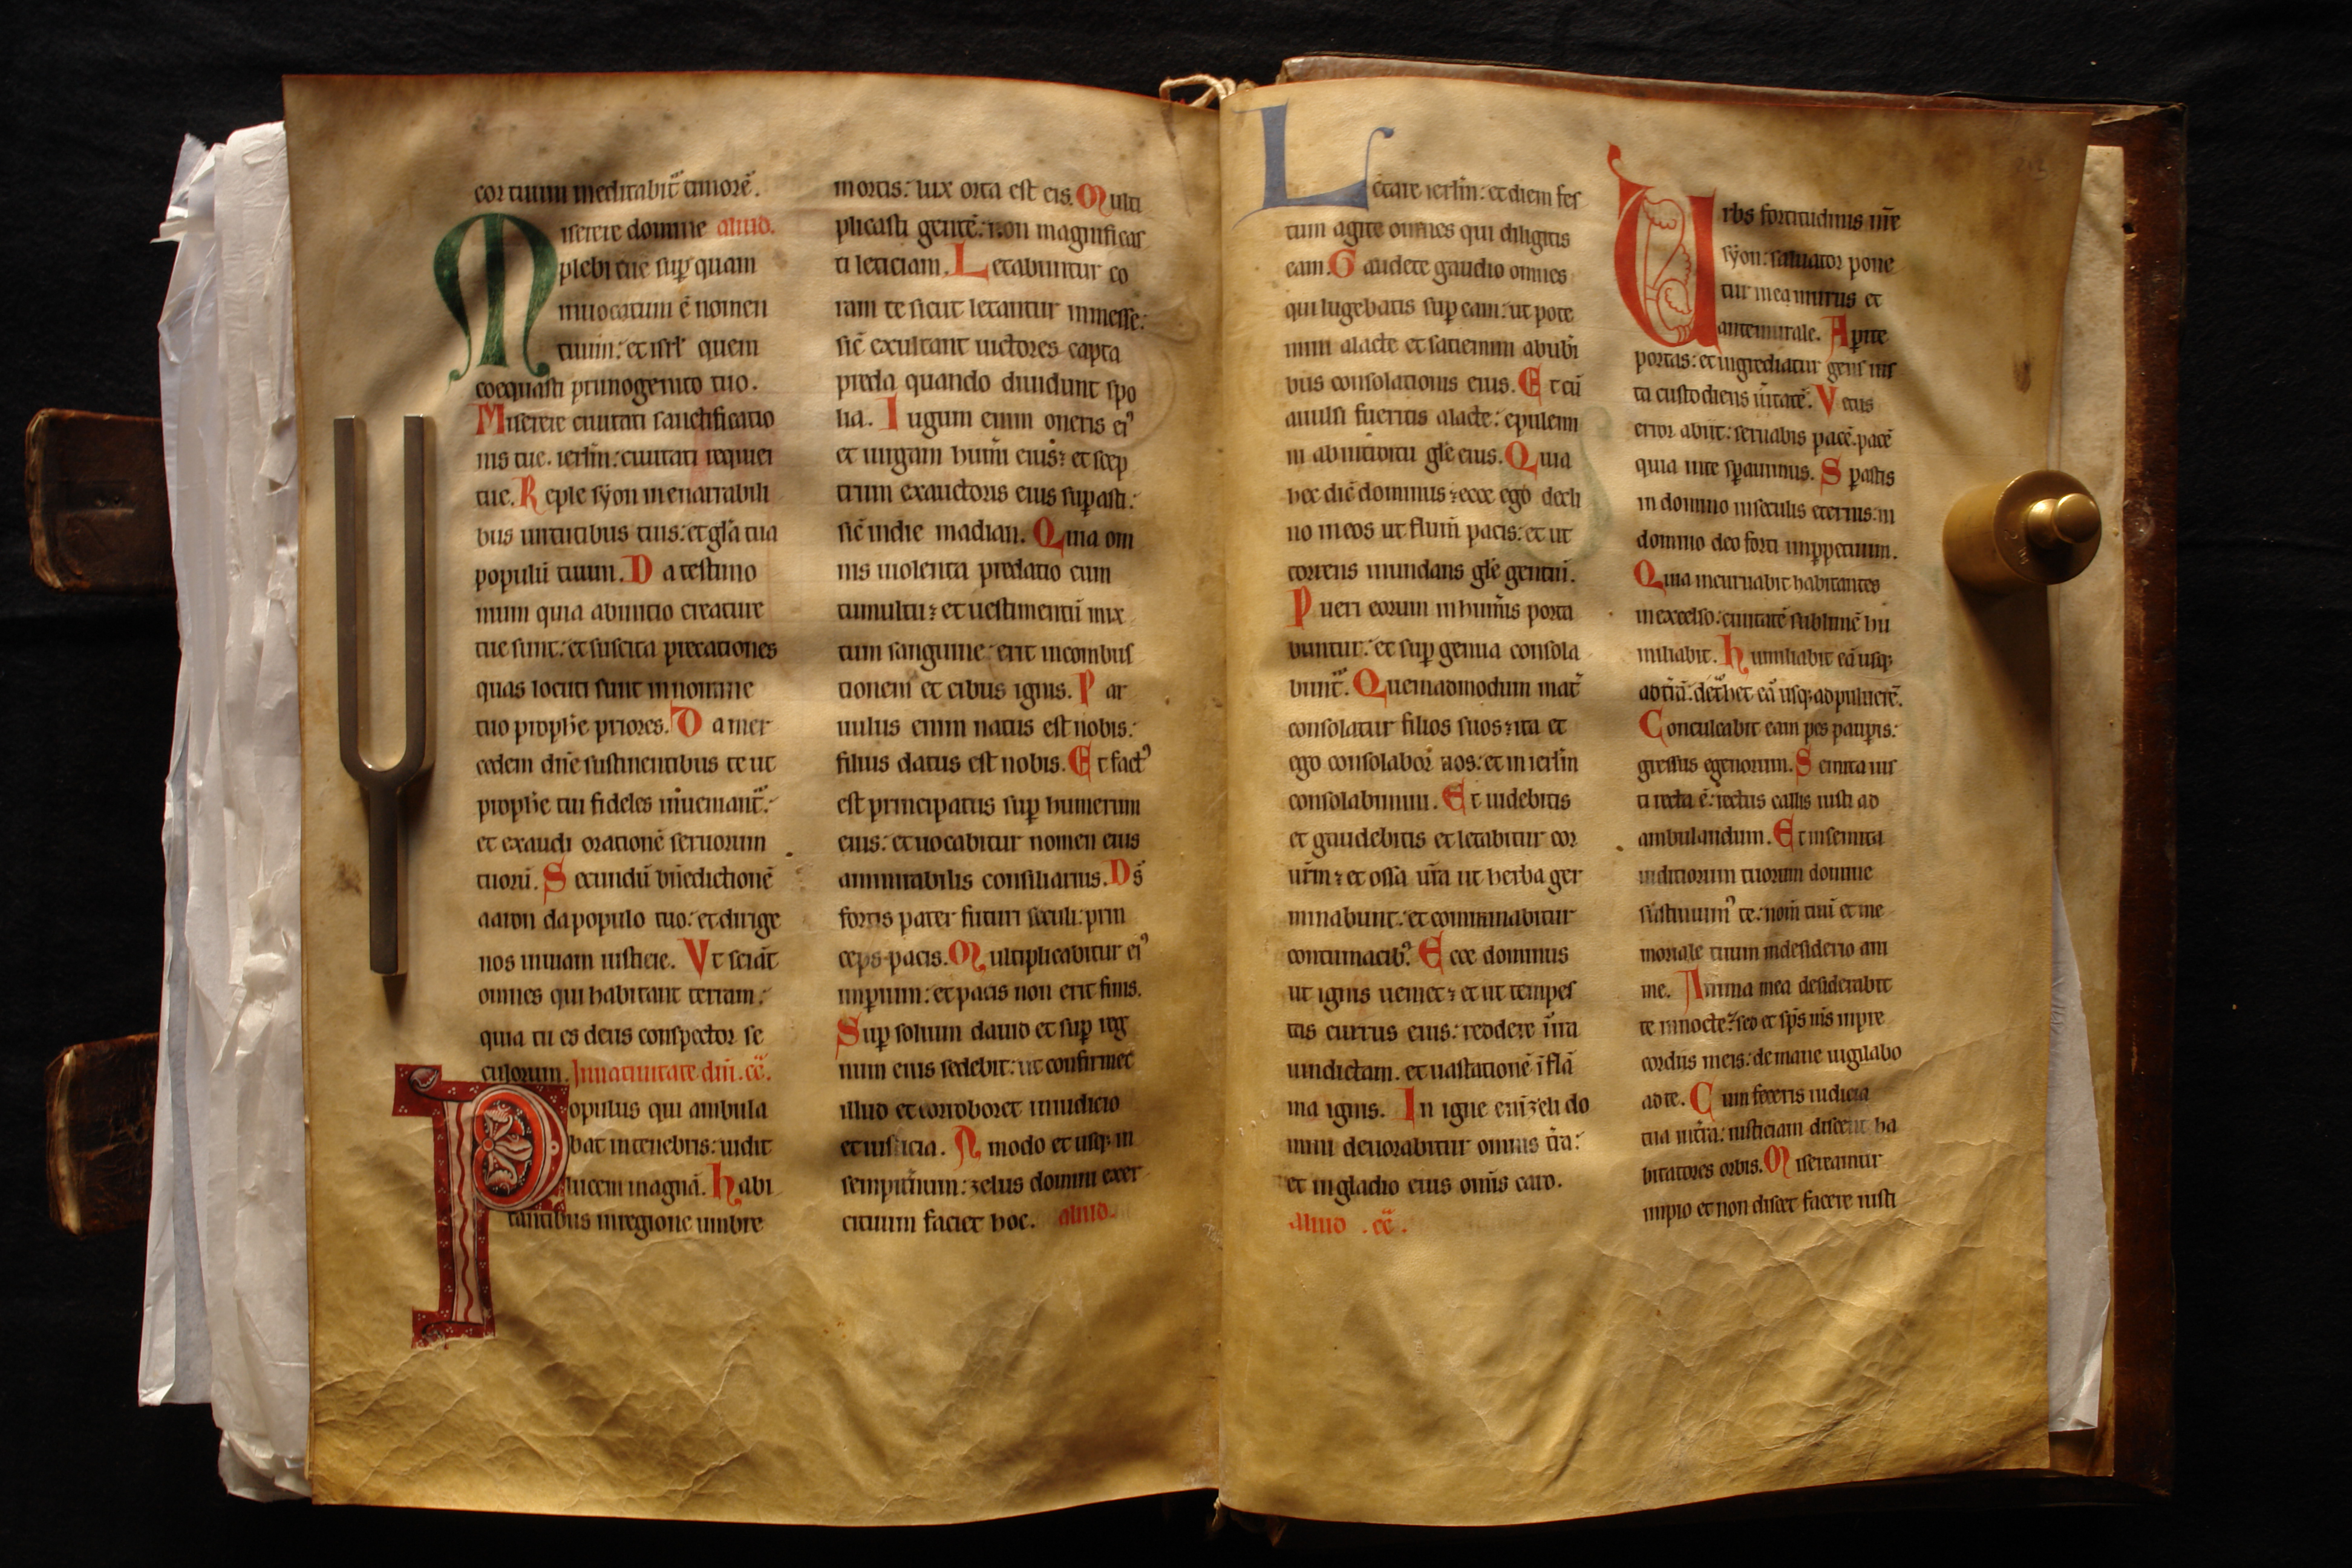 cor tuum meditabit᷑ timorē.
Miserere domine aliud.
plebi tue sup̱ quam
inuocatum ē nomen
tuum: et isrl̄ quem
coequasti primogenito tuo.
Miserere ciuitati sanctificatio
nis tue. ierl̄m: ciuitati requiei
tue. Reple sẏon inenarrabili
bus uirtutibus tuis: et gl̄a tua
populū tuum. Da testimo
nium quia abinitio creature
tue sunt: et suscita precationes
quas locuti sunt innomine
tuo prophe priores. Da mer
cedem dn̄e sustinentibus te ut
prophe tui fideles inueniant᷑:
et exaudi orationē seruorum
tuorū. Secundū bn̄edictionē
aaron dapopulo tuo: et dirige
nos inuiam iusticie. Vt sciāt
omnes qui habitant terram:
quia tu es deus conspector se
culorum. Innatiuitate dn̄i. cc̄.
Populus qui ambula
bat intenebris: uidit
lucem magnā. habi
tantibus inregione umbre
mortis: lux orta est eis. Multi
plicasti gentē: non magnificas
ti leticiam. Letabuntur co
ram te sicut letantur inmesse:
sic̄ exultant uictores capta
preda quando diuidunt spo
lia. Iugum enim oneris ei᾿
et uirgam hum̄i eius: et scep
trum exactoris eius sup̱asti:
sic̄ indie madian. Quia om
nis uiolenta predatio cum
tumultu: et uestimentū mix
tum sanguine: erit incombus
tionem et cibus ignis. Par
uulus enim natus est nobis:
filius datus est nobis. Et fact᾿
est principatus sup̱ humerum
eius: et uocabitur nomen eius
ammirabilis consiliarius. Ds̄
fortis pater futuri seculi: prin
ceps pacis. Multiplicabitur ei᾿
imp̱ium: et pacis non erit finis.
Sup̱ solium dauid et sup̱ reg
num eius sedebit: ut confirmet
illud et corroboret iniudicio
et iusticia. A modo et usq; in
sempit̄num: zelus domini exer
cituum faciet hoc. aliud.
Letare ierl̄m: et diem fes
tum agite omnes qui diligitis
eam. Gaudete gaudio omnes
qui lugebatis sup̱ eam: ut pote
mini alacte et satiemini abubi
bus consolationis eius. Et cū
auulsi fueritis alacte: epulemi
ni abintroitu gl̄e eius. Quia
hec dic̄ dominus: ecce ego decli
no ineos ut flum̄ pacis: et ut
torrens inundans gl̄e gentiū.
Pueri eorum inhum̄is porta
buntur: et sup̱ genua consola
bunt᷑. Quemadmodum mat᷑
consolatur filios suos: ita et
ego consolabor uos: et in ierl̄m
consolabimini. Et uidebitis
et gaudebitis et letabitur cor
ur̄m: et ossa ur̄a ut herba ger
minabunt: et comminabitur
contumacib᾿. Ecce dominus
ut ignis ueniet: et ut tempes
tas currus eius: reddere inira
uindictam. et uastationē īflā
ma ignis. In igne enī zeli do
mini deuorabitur omnis t̄ra:
et ingladio eius om̄is caro.
aliud .cc̄.
Urbs fortitudinis nr̄e
sẏon: saluator pone
tur inea murus et
antemurale. Ap̱ite
portas: et ingrediatur gens ius
ta custodiens uītatē. Vetus
error abiit: seruabis pacē. pacē
quia inte sp̱auimus. Sp̱astis
in domino inseculis eternis: in
domino deo forti inp̱petuum.
Quia incuruabit habitantes
inexcelso: ciuitatē sublimē hu
miliabit. humiliabit eā usq;
adt̄rā: det᷑het eā usq; adpuluerē.
Conculcabit eam pes paup̱is:
gressus egenorum. Semita ius
ti recta ē: rectus callis iusti ad
ambulandum. Et insemita
iudiciorum tuorum domine
sustinuim᾿ te: nom̄ tuū et me
moriale tuum indesiderio ani
me. Anima mea desiderabit
te innocte: sed et sp̄s m̄s inpre
cordiis meis: demane uigilabo
adte. Cum feceris iudicia
tua int̄ra: iusticiam discent ha
bitatores orbis. Misereamur
impio et non discet facere iusti